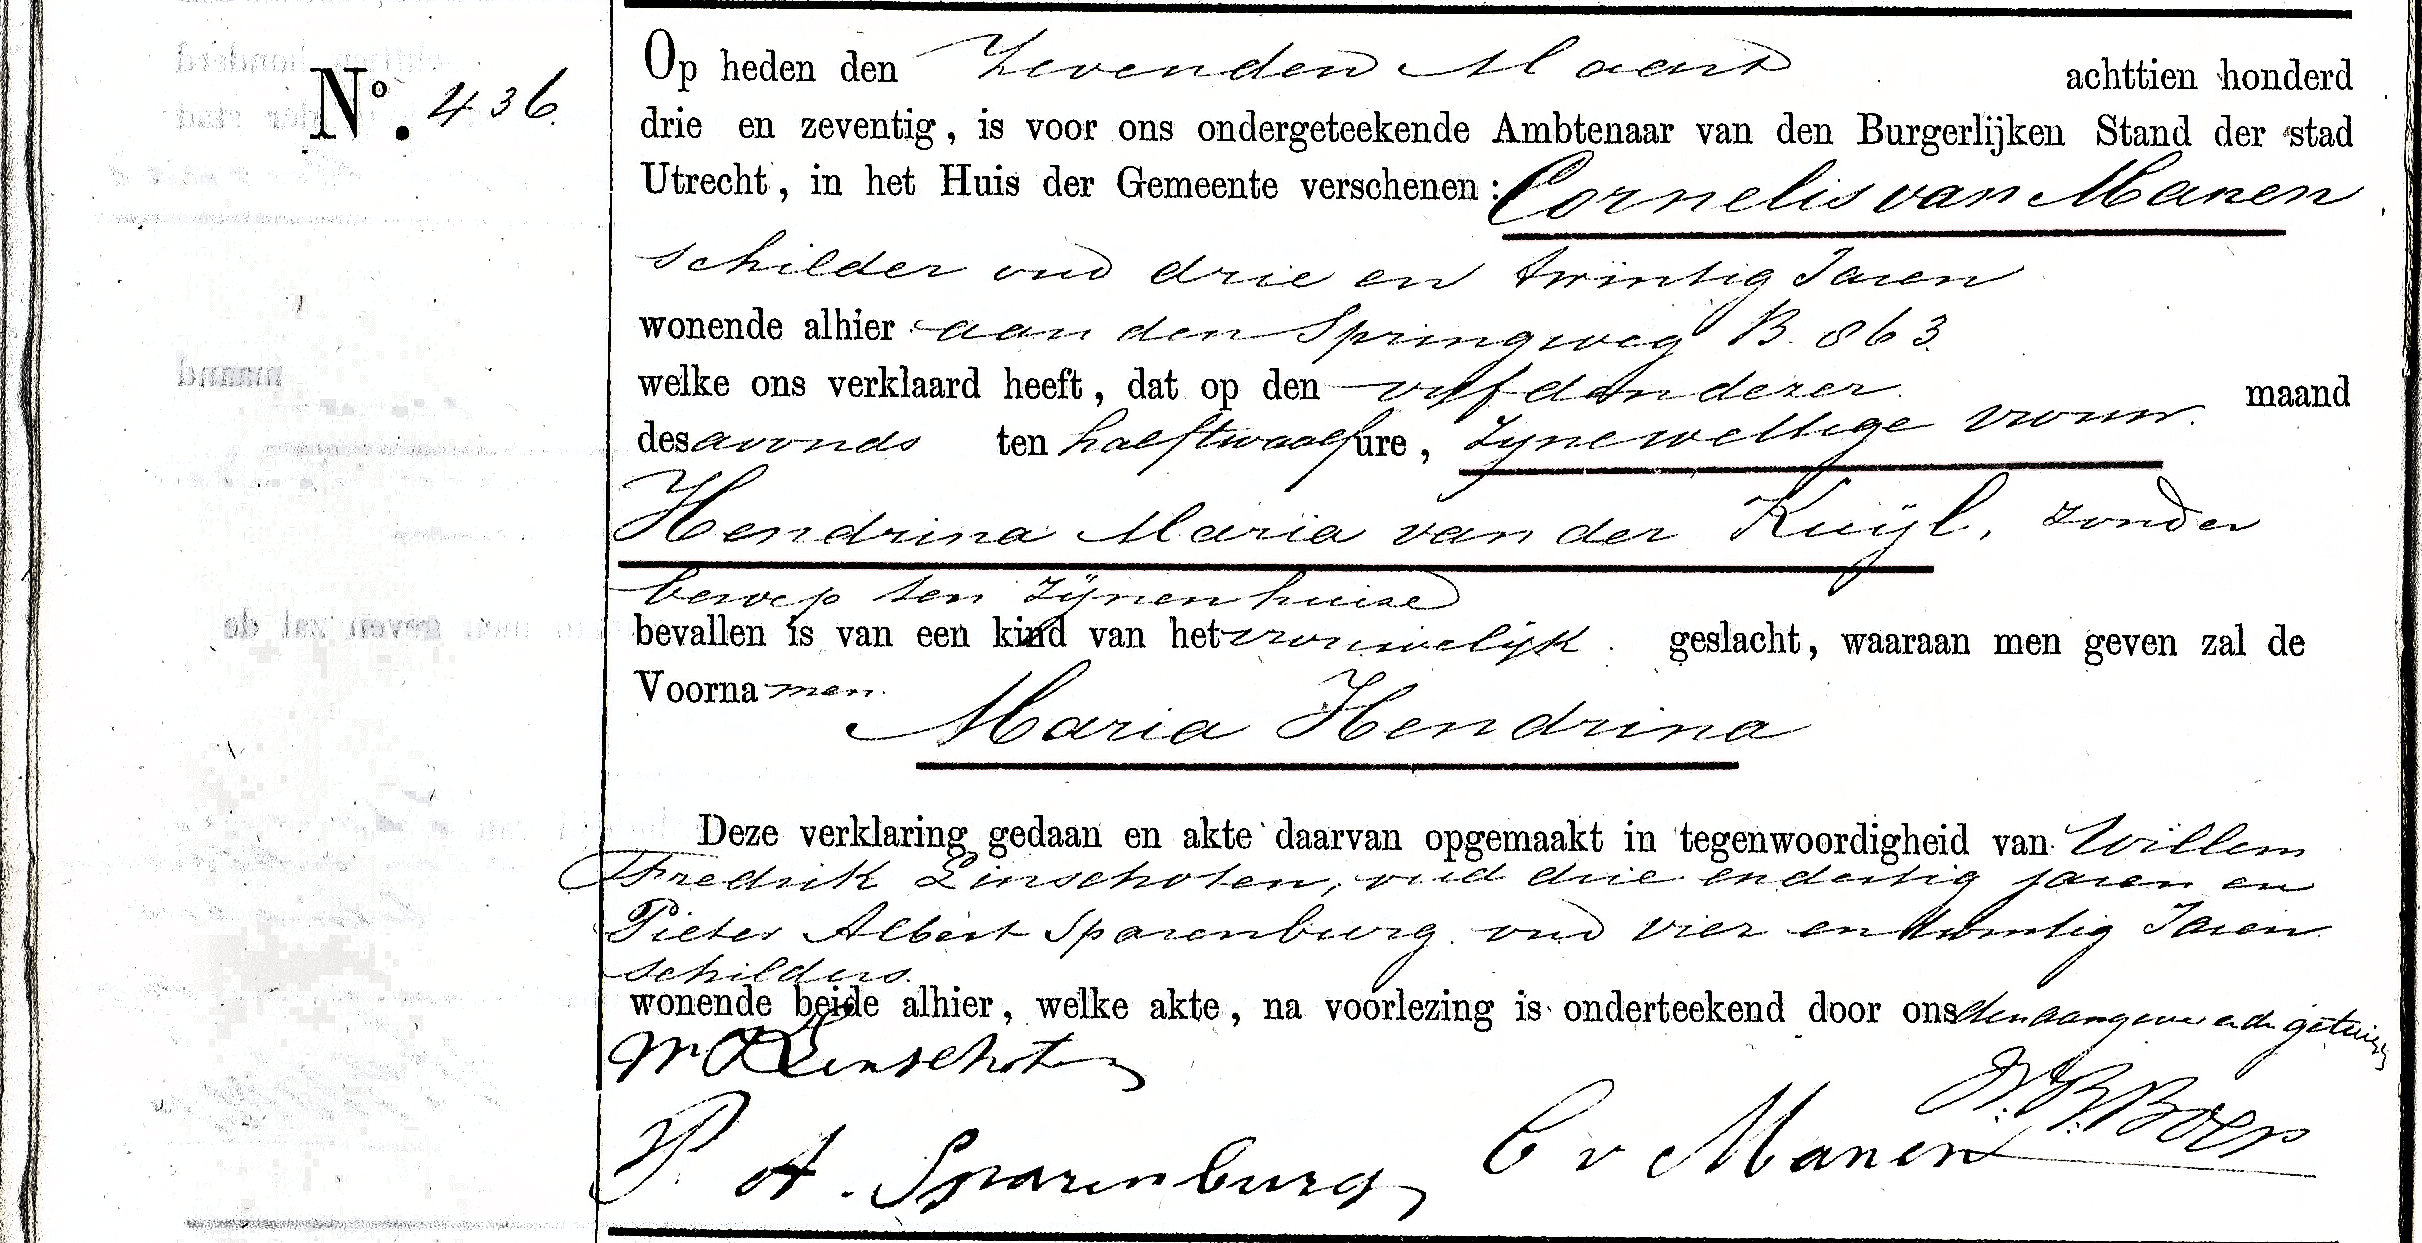 Nº. 436.
Op heden den Zevenden Maart achttien honderd
drie en zeventig, is voor ons ondergeteekende Ambtenaar van den Burgerlijken Stand der stad
Utrecht, in het Huis der Gemeente verschenen: Cornelis van Manen
schilder oud drie en twintig Jaren
wonende alhier aan den Springweg B. 863.
welke ons verklaard heeft, dat op den vijfden dezer maand
des avonds ten half twaalf ure, zyne wettige vrouw.
Hendrina Maria van der Kuÿl, zonder
beroep ten zÿnen huize
bevallen is van een kind van het vrouwelijk geslacht, waaraan men geven zal de
Voornamen.
Maria Hendrina
Deze verklaring gedaan en akte daarvan opgemaakt in tegenwoordigheid van Willem
Fredrik Linschoten, oud drie en dertig jaren en
Pieter Albert Sparenburg oud vier en twintig Jaren
schilders.
wonende beide alhier, welke akte, na voorlezing is onderteekend door ons den aangever en de getuigen
W F Linschoten
P. A. Sparenburg
C v Manen
Boer
maand
men geven zal de